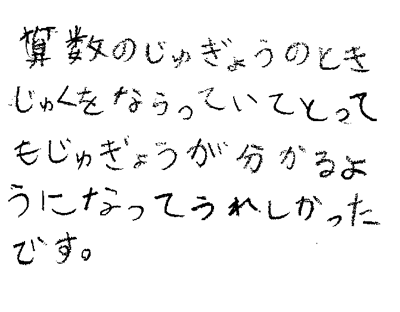 算数のじゅぎょうのとき
じゅくをならっていてとって
もじゅぎょうが分かるよ
うになってうれしかった
です。